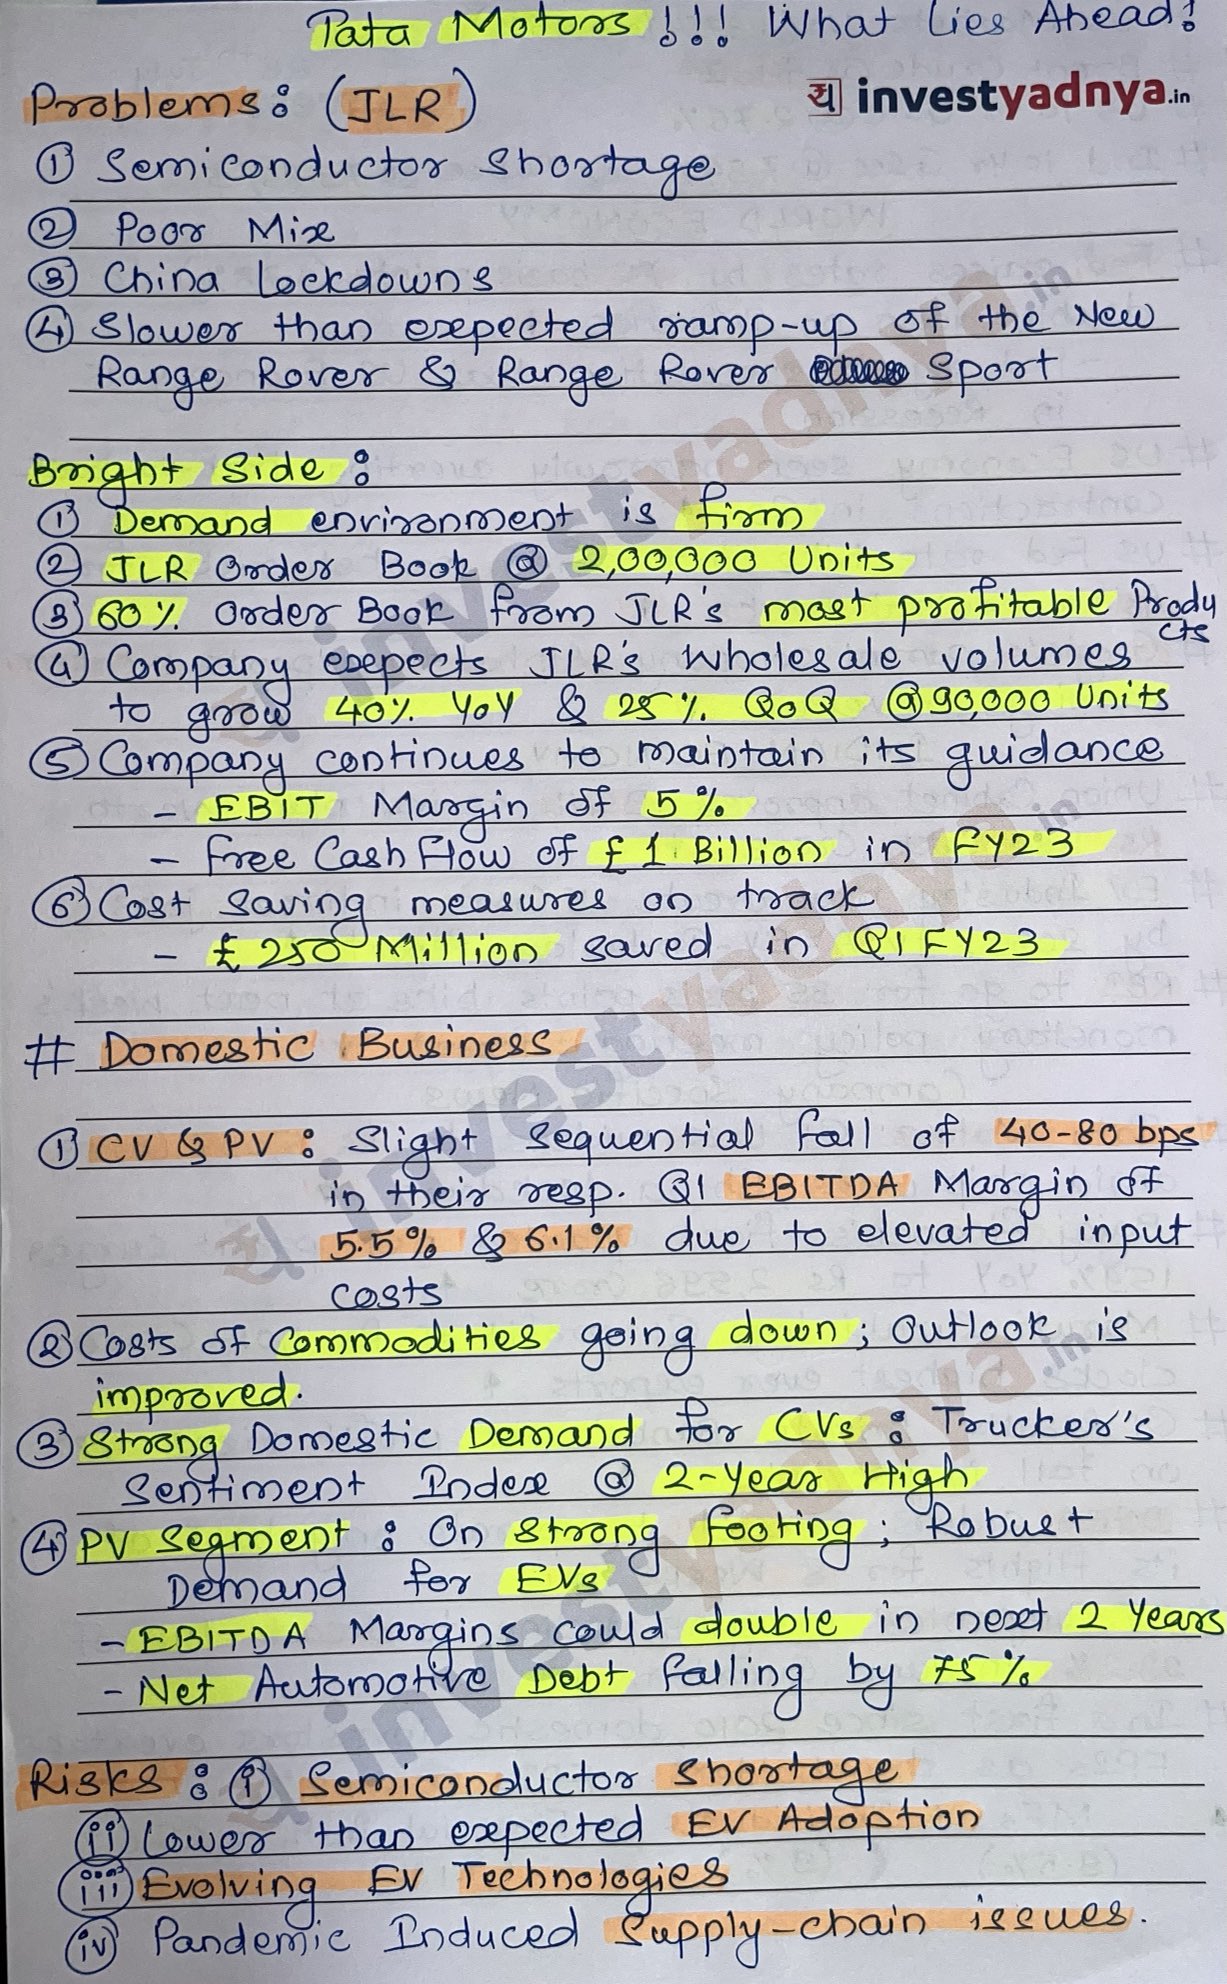 Tata Motors !!! What Lies Ahead?
Problems: (JLR)
य investyadnya.in
① Semiconductor Shortage
② Poor Mix
③ China Lockdowns
④ Slower than expected ramp-up of the New
Range Rover & Range Rover Sport
Bright Side:
① Demand environment is firm
② JLR Order Book @ 2,00,000 Units
③ 60% Order Book from JLR's most profitable Produ
cts
④ Company expects JLR's Wholesale volumes
to grow 40% YoY & 25% QoQ @ 90,000 Units
⑤ Company continues to maintain its guidance
- EBIT Margin of 5%
- Free Cash Flow of £1 Billion in FY23
⑥ Cost saving measures on track
- £250 Million saved in Q1FY23
# Domestic Business
① CV & PV: Slight Sequential fall of 40-80 bps
in their resp. Q1 EBITDA Margin of
5.5% & 6.1% due to elevated input
costs
② Costs of Commodities going down; Outlook is
improved.
③ Strong Domestic Demand for CVs: Trucker's
Sentiment Index @ 2-Year High
④ PV Segment: On Strong footing; Robust
Demand for EVs
- EBITDA Margins could double in next 2 Years
- Net Automotive Debt falling by 75%
Risks: ⓘ Semiconductor Shortage
ii Lower than expected EV Adoption
iii Evolving EV Technologies
iv Pandemic Induced Supply-chain issues.